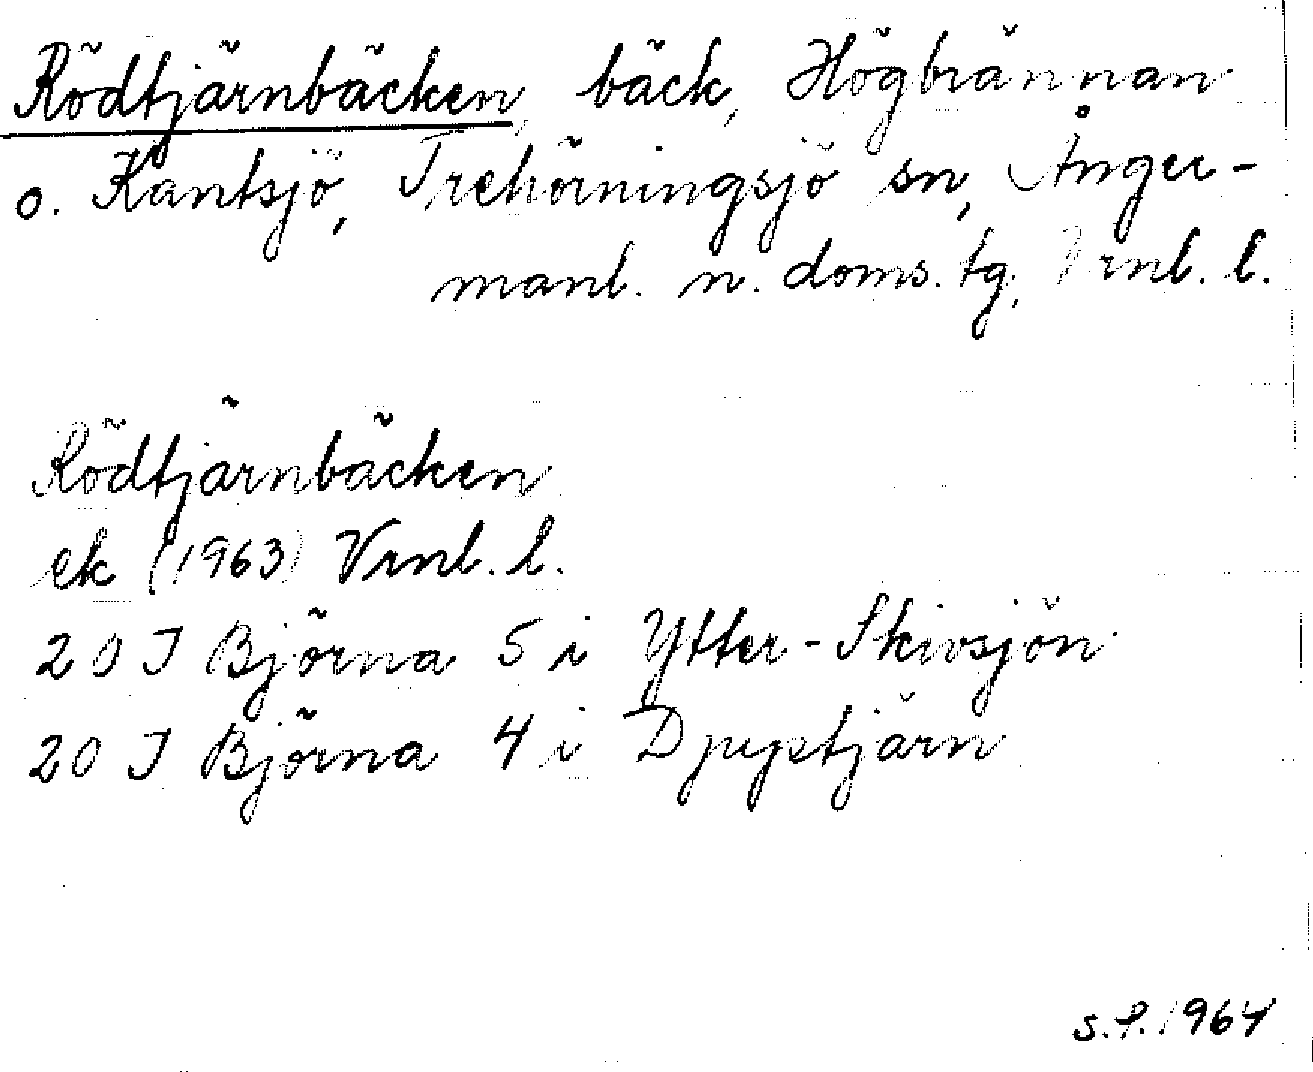 Rödtjärnbäcken, bäck, Högbrännan
o. Kantsjö, Trehörningsjö sn, Ånger-
manl. n. doms. tg, Vrnl. l.
Rödtjärnbäcken
ek (1963) Vrnl. l.
20 J Björna 5 i Ytter-Skivsjön
20 J Björna 4 i Djupstjärn
s. f. 1964